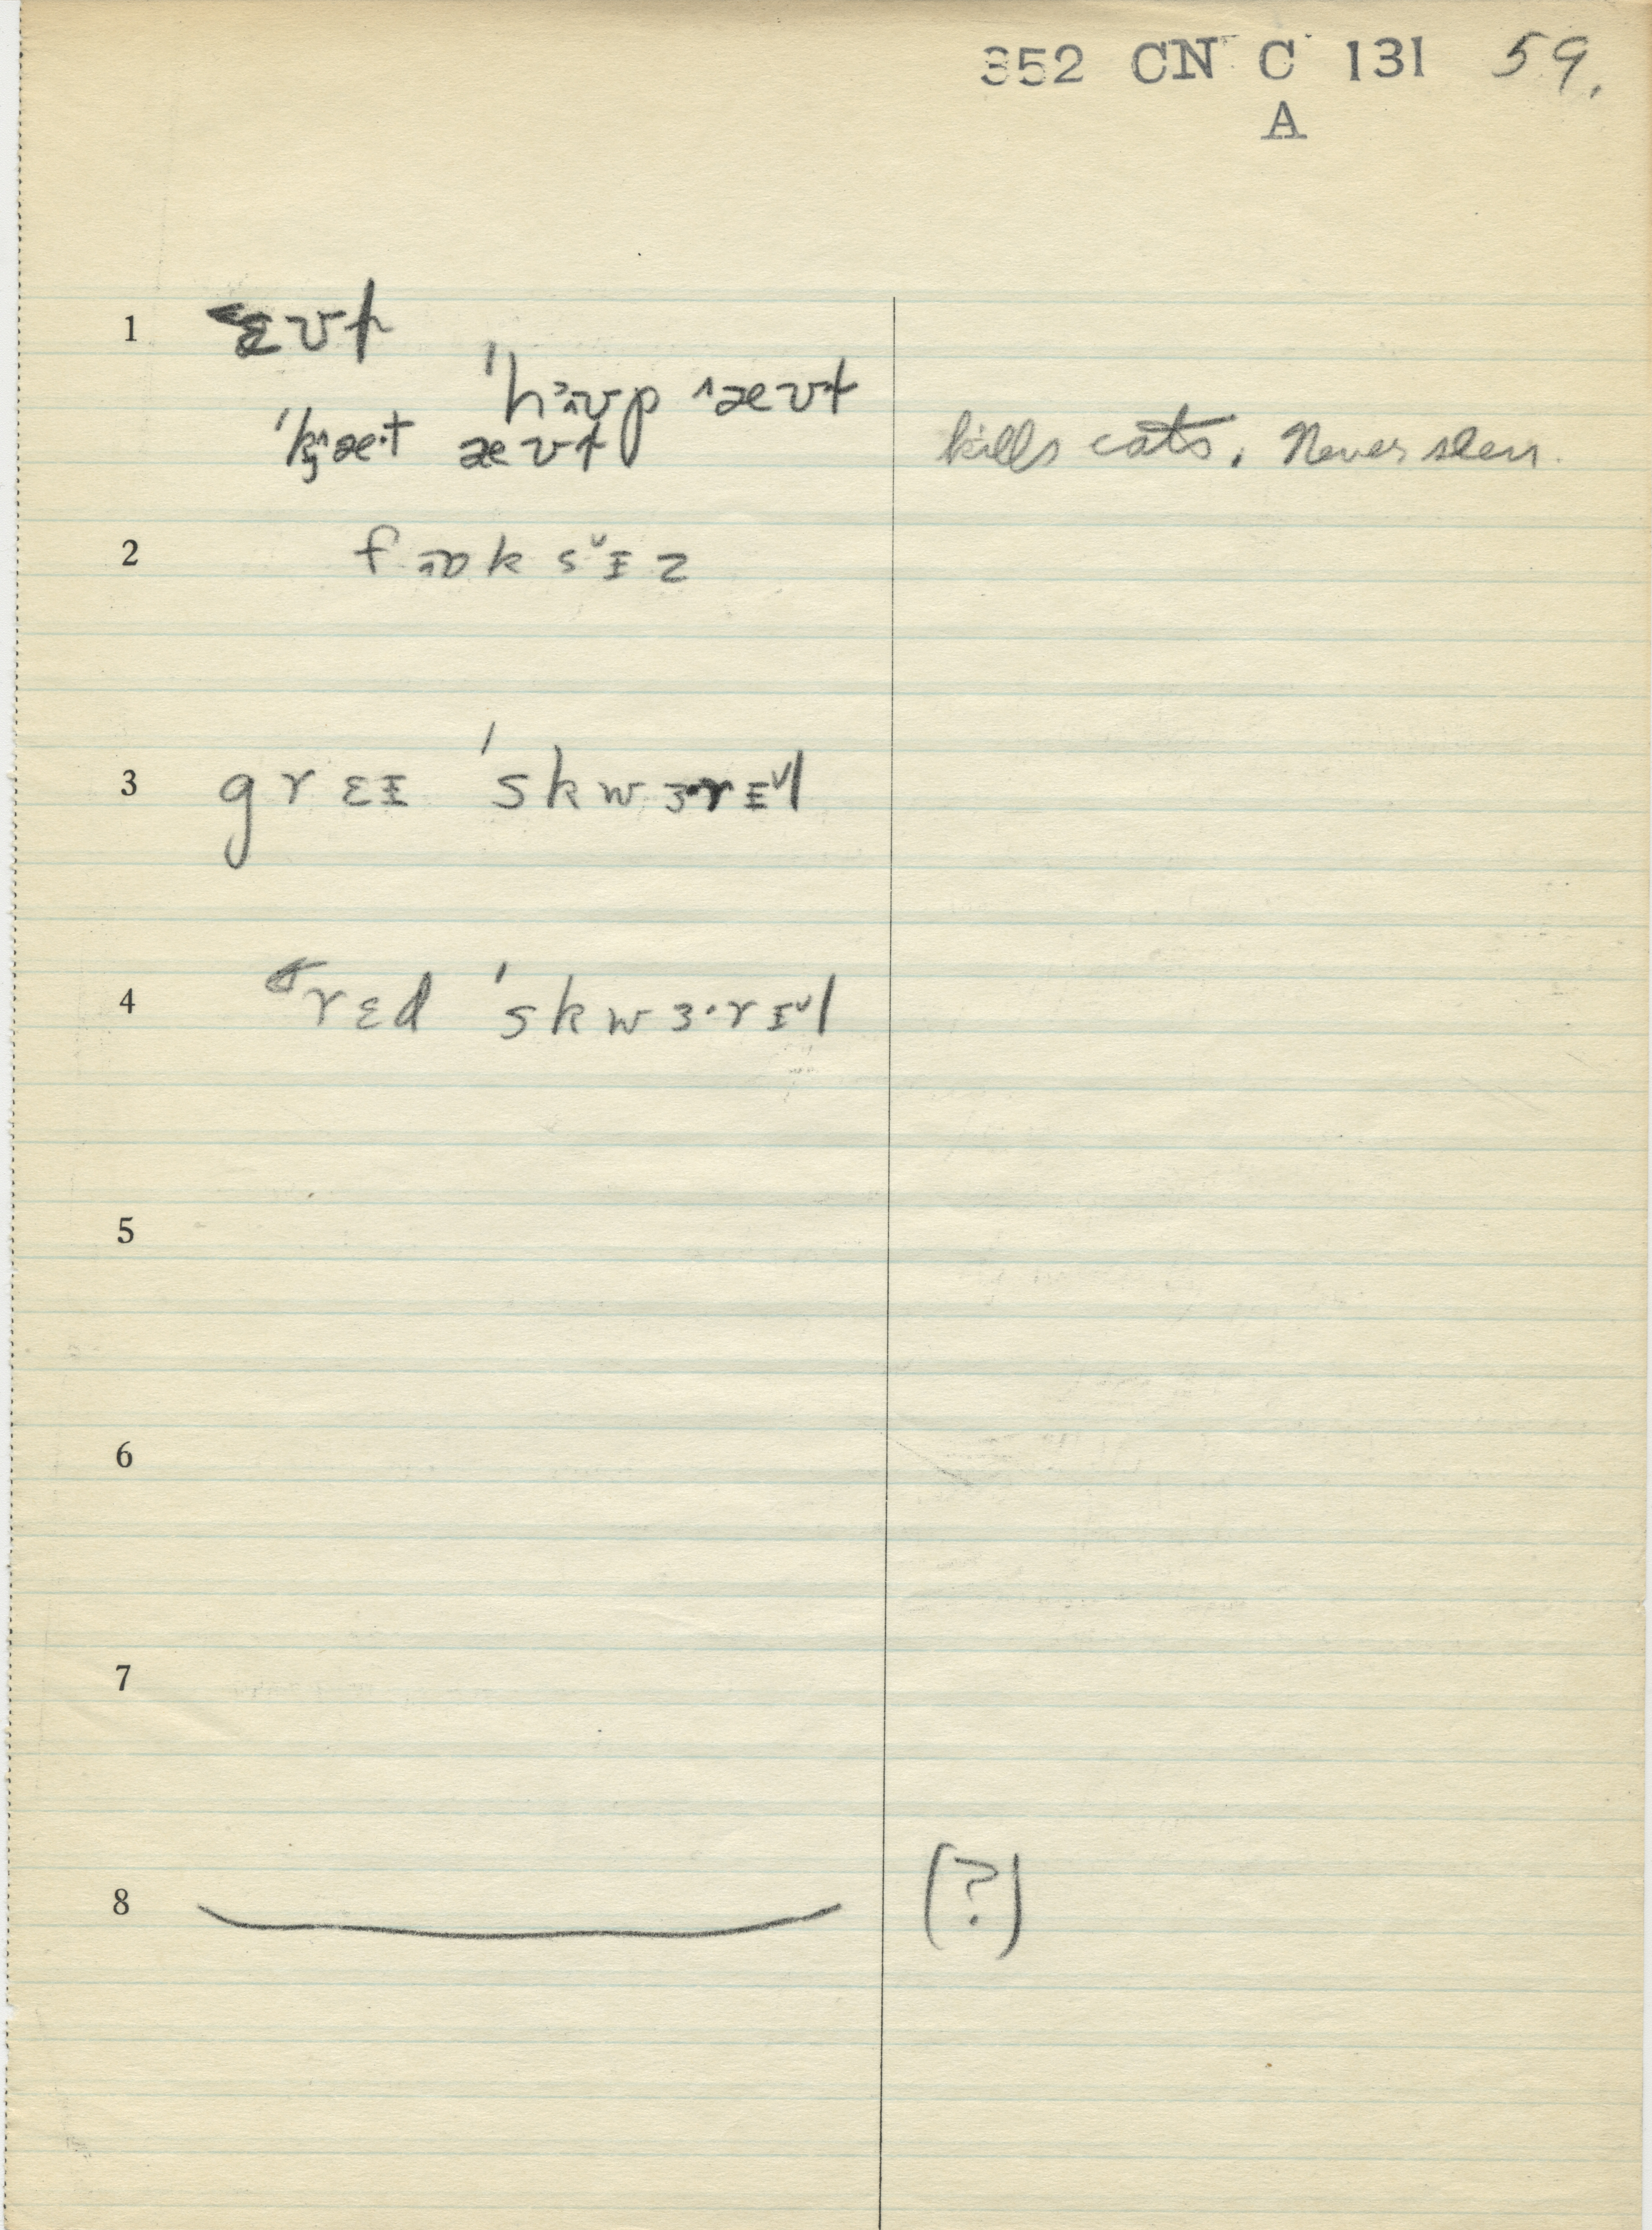 352 CN C 131 59.
A
1 ɛʊt
ˈhɒʊp ˄æʊt
ˈkæ·t æʊt kills cats. Never seen.
2 fɒksˇɪz
3 grɛɪ ˈskwɜ·rɪˇl
4 rɛd ˈskwɜ·rɪˇl
5
6
7
8 (?)